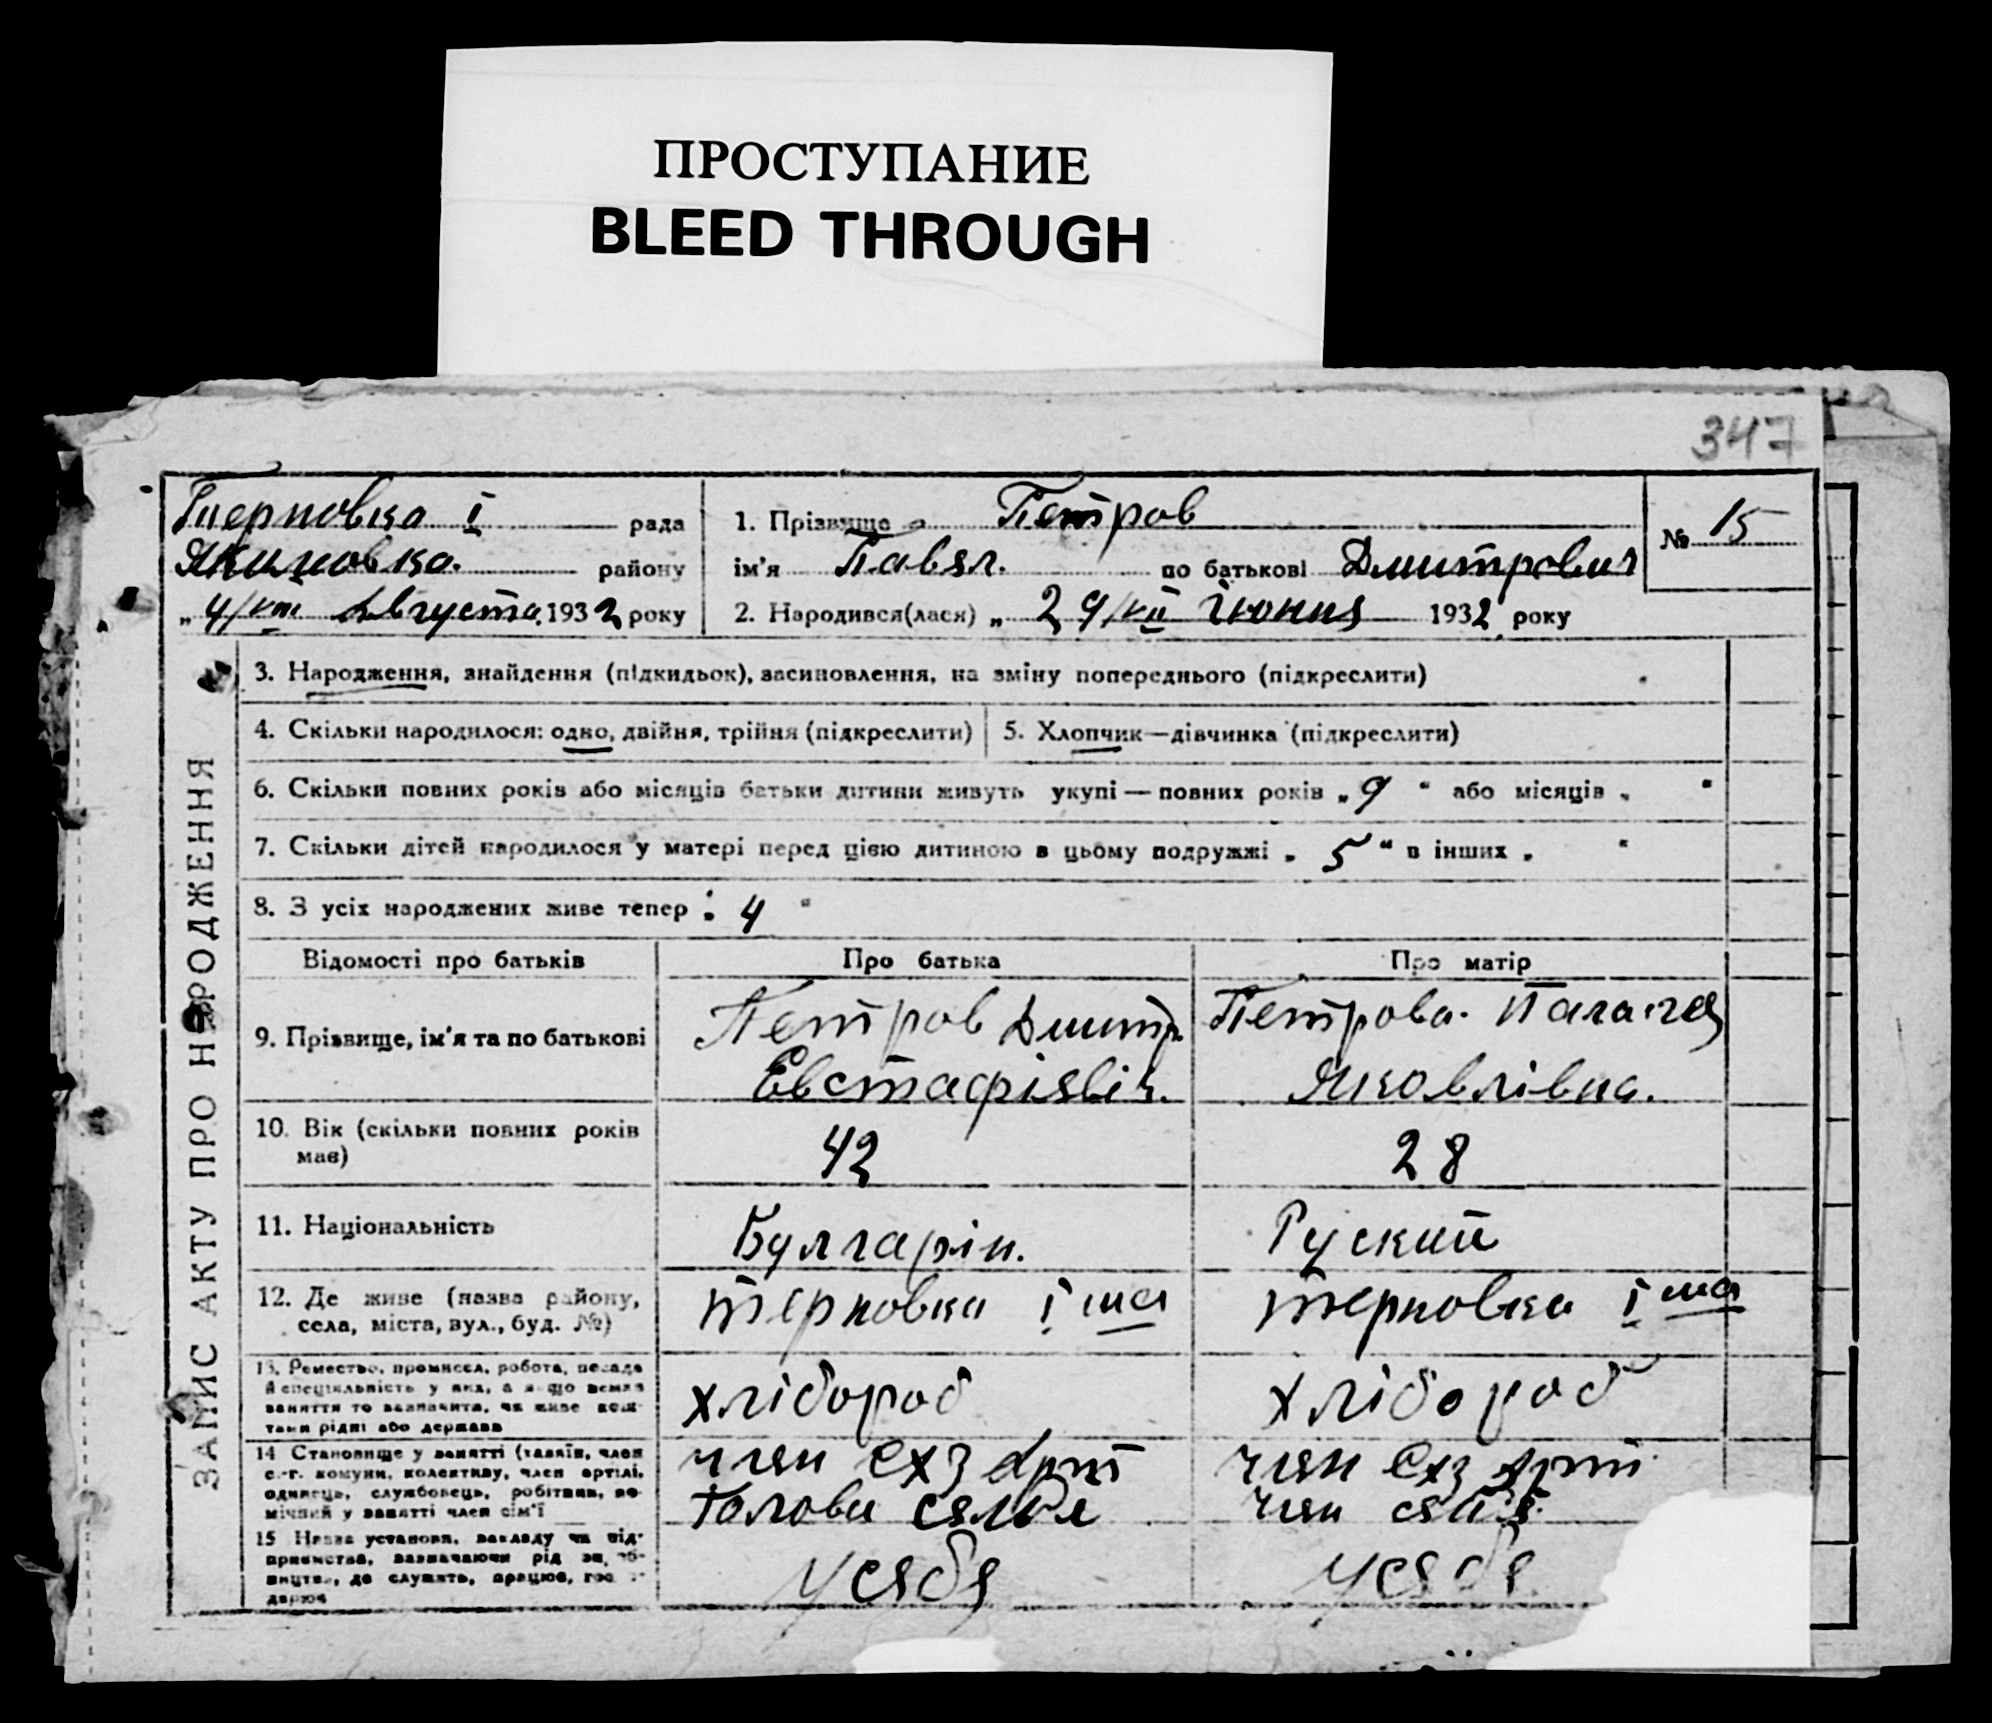 ПРОСТУПАНИЕ
BLEED THROUGH
347
Терновка I рада
Якимовка. району
„ 4/VIII Августа 1932 року
1. Прізвище Петров
ім'я Павєл. по батькові Дмитрович
2. Народився(лася) „ 29/VII Июния 1932 року
№ 15
ЗАПИС АКТУ ПРО НАРОДЖЕННЯ
3. Народження, знайдення (підкидьок), засиновлення, на зміну попереднього (підкреслити)
4. Скільки народилося: одно, двійня, трійня (підкреслити)
5. Хлопчик—дівчинка (підкреслити)
6. Скільки повних років або місяців батьки дитини живуть укупі — повних років „ 9 “ або місяців „ “
7. Скільки дітей народилося у матері перед цією дитиною в цьому подружжі „ 5 “ в інших „ “
8. З усіх народжених живе тепер „ 4 “
Відомості про батьків Про батька Про матір
9. Прізвище, ім'я та по батькові
Петров Дмитр.
Евстафієвіч.
Петрова. Палагея
Яковлівна.
10. Вік (скільки повних років
має)
42
28
11. Національність
Булгарін.
Руский
12. Де живе (назва району,
села, міста, вул., буд. №)
терновка І ша
терновка І ша
13. Ремество, промисел, робота, посада
й спеціяльність у них, а якщо немає
заняття то зазначити, чи живе кош-
тами рідні або держави
хлібороб
хлібороб
14 Становище у занятті (хазяїн, член
с.-г. комуни, колективу, член артілі,
одинець, службовець, робітник, по-
мічний у занятті член сім'ї
член схз Арт
Голова
член схз Арт
член
15 Назва установи, закладу чи під-
приємства, зазначаючи рід
де служить, працює,
усебя
усебя